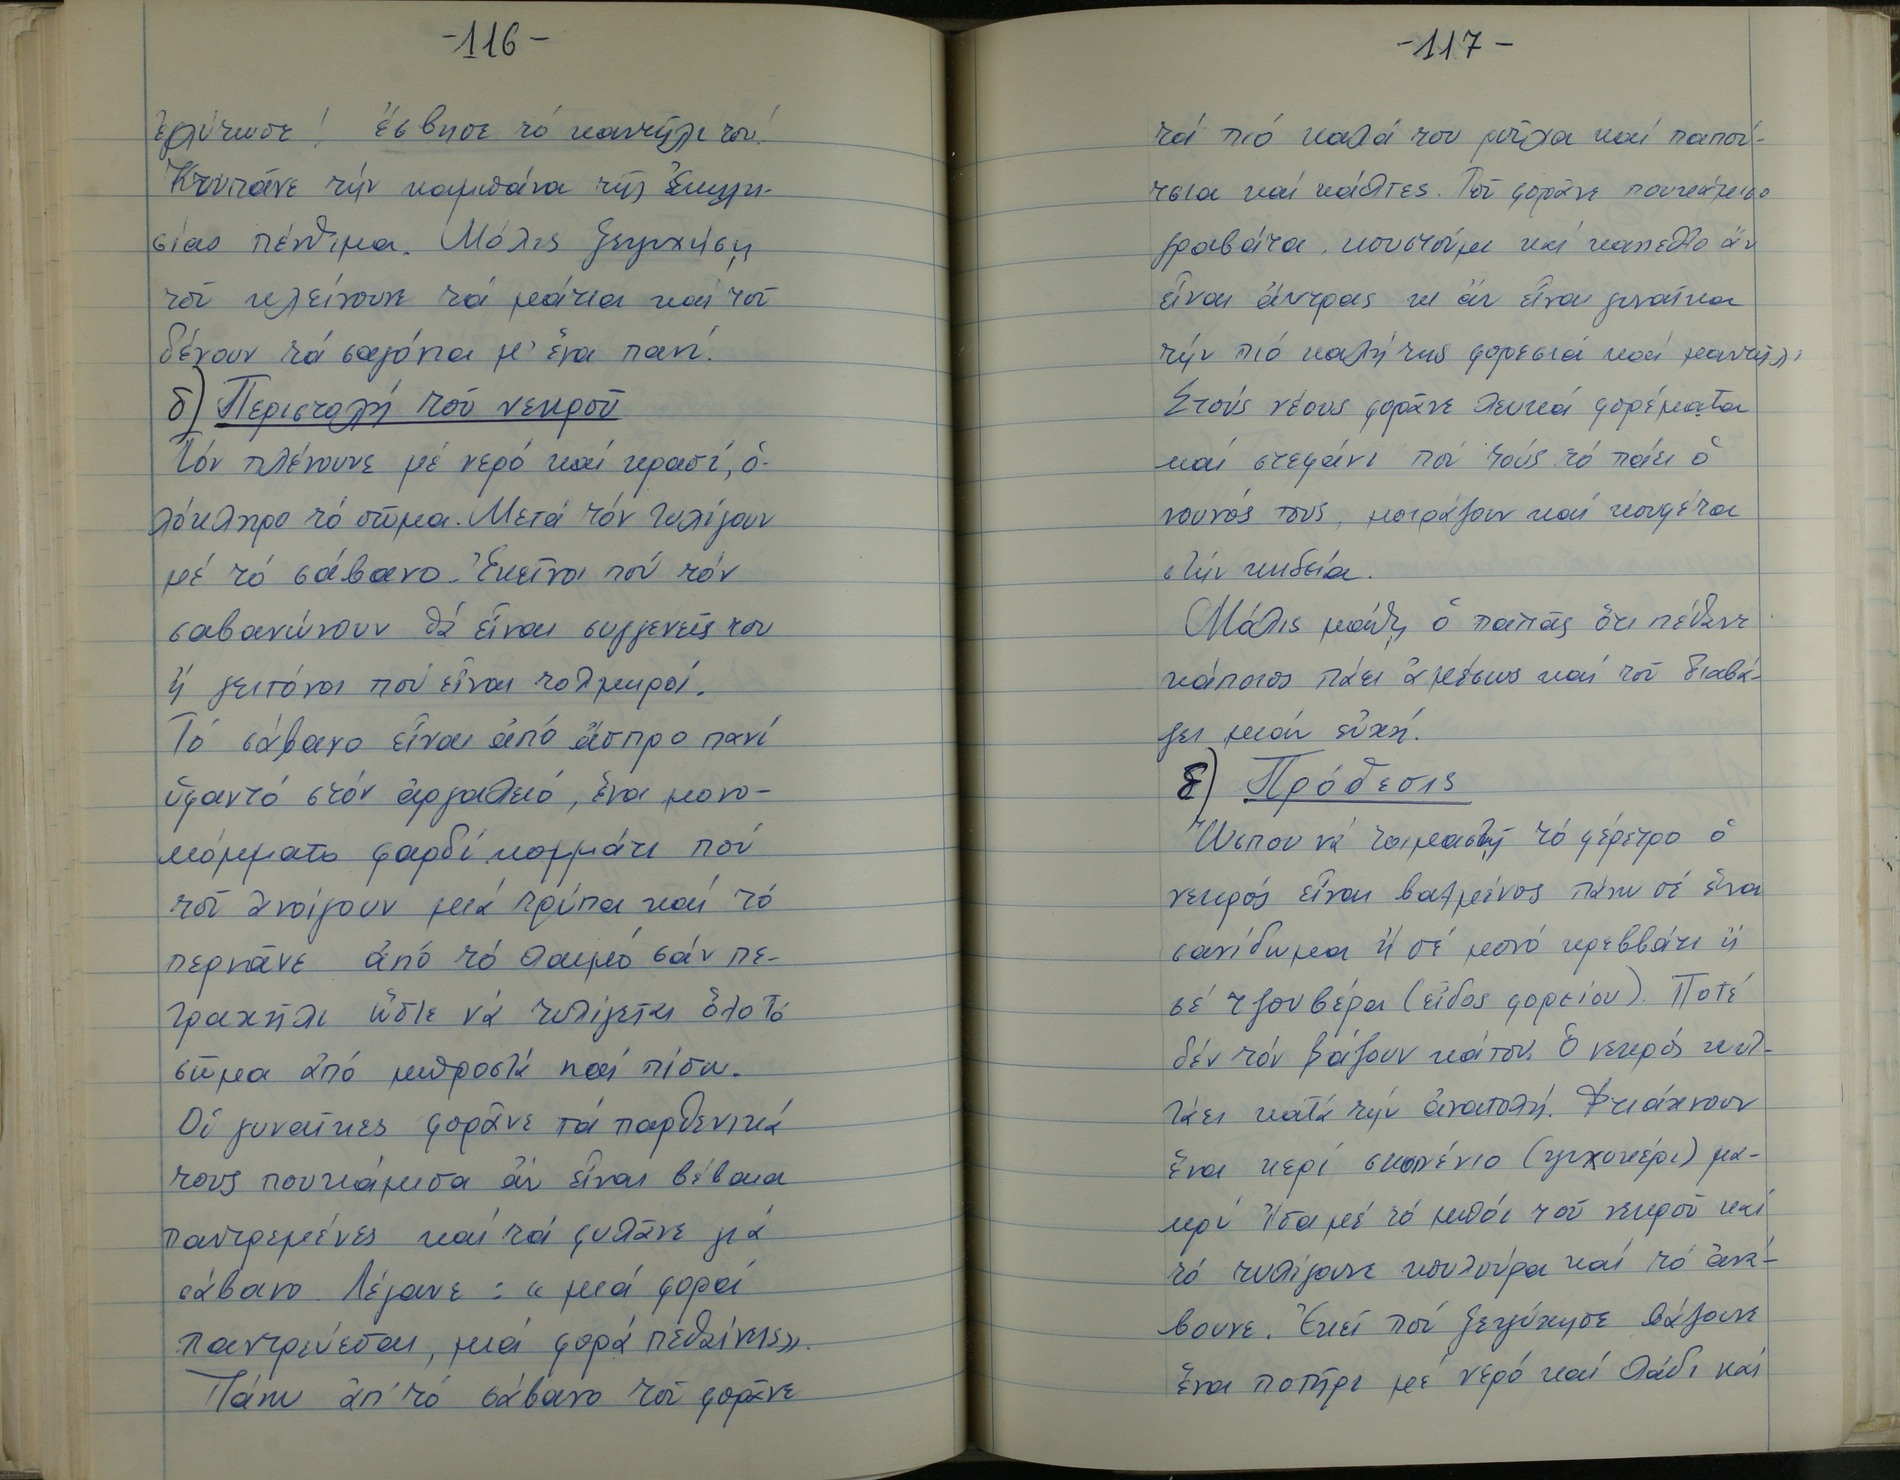 -116-
ἐγλύτωσε! ἔσβησε τό καντήλι του!
Κτυπᾶνε τήν καμπάνα τῆς Ἐκκλη-
σίας πένθιμα. Μόλις ξεψυχήσῃ
τοῦ κλείνουνε τά μάτια καί τοῦ
δένουν τά σαγόνια μ' ἕνα πανί.
δ) Περιστολή τοῦ νεκροῦ
Τόν πλένουνε μέ νερό καί κρασί, ὁ-
λόκληρο τό σῶμα. Μετά τόν τυλίγουν
μέ τό σάβανο. Ἐκεῖνοι πού τόν
σαβανώνουν θά εἶναι συγγενείς του
ἤ γειτόνοι πού εἶναι τολμηροί.
Τό σάβανο εἶναι ἀπό ἄσπρο πανί
ὑφαντό στόν ἀργαλειό, ἕνα μονο-
κόμματο φαρδί κομμάτι πού
τοῦ ἀνοίγουν μιά τρύπα καί τό
περνᾶνε ἀπό τό λαιμό σάν πε-
τραχήλι ὥστε νά τυλίγεται ὅλο τό
σῶμα ἀπό μπροστά καί πίσω.
Οἱ γυναῖκες φορᾶνε τά παρθενικά
τους πουκάμισα ἄν εἶναι βέβαια
παντρεμένες καί τά φυλᾶνε γιά
σάβανο. Λέγανε: «μιά φορά
παντρεύεσαι, μιά φορά πεθαίνεις».
Πάνω ἀπ' τό σάβανο τοῦ φορᾶνε
-117-
τά πιό καλά του ροῦχα καί παπού-
τσια καί κάλτες. Τοῦ φορᾶνε πουκάμισο
γραβάτα, κουστούμι καί καπέλλο ἄν
εἶναι ἄντρας κι ἄν εἶναι γυναῖκα
τήν πιό καλή της φορεσιά καί μαντήλι
Στούς νέους φορᾶνε λευκά φορέματα
καί στεφάνι πού τούς τό πάει ὁ
νουνός τους, μοιράζουν καί κουφέτα
στήν κηδεία.
Μόλις μάθῃ ὁ παπᾶς ὅτι πέθανε
κάποιος πάει ἀμέσως καί τοῦ διαβά-
ζει μιάν εὐχή.
ε) Πρόθεσις
Ὥσπου νά τοιμαστῇ τό φέρετρο ὁ
νεκρός εἶναι βαλμένος πάνω σέ ἕνα
σανίδωμα ἤ σέ μονό κρεββάτι ἤ
σέ τζουβέρα (εἶδος φορείου). Ποτέ
δέν τόν βάζουν κάτου. Ὁ νεκρός κυτ-
τάει κατά τήν ἀνατολή. Φτιάχνουν
ἕνα κερί σκοινένιο (ψυχοκέρι) μα-
κρύ ἴσα μέ τό μπόι τοῦ νεκροῦ καί
τό τυλίγουνε κουλούρα καί τό ἀνά-
βουνε. Ἐκεῖ πού ξεψύχησε βάζουνε
ἕνα ποτήρι μέ νερό καί λάδι καί